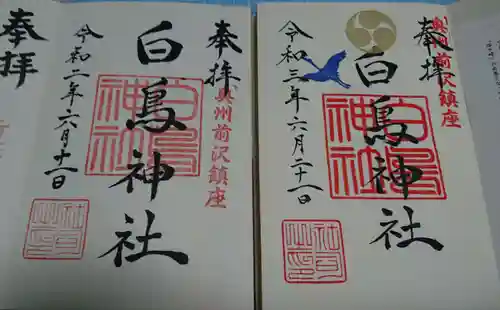 奉拝
奥州前沢鎮座
白鳥神社
白鳥神社
令和三年六月二十一日
奉拝
奥州前沢鎮座
白鳥神社
白鳥神社
令和二年六月十二日
奉拝